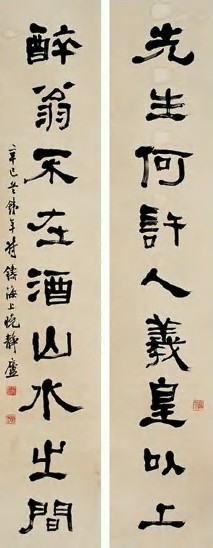 先生何許人羲皇以上
醉翁不在酒山水之間
辛巳 海上晚靜廬